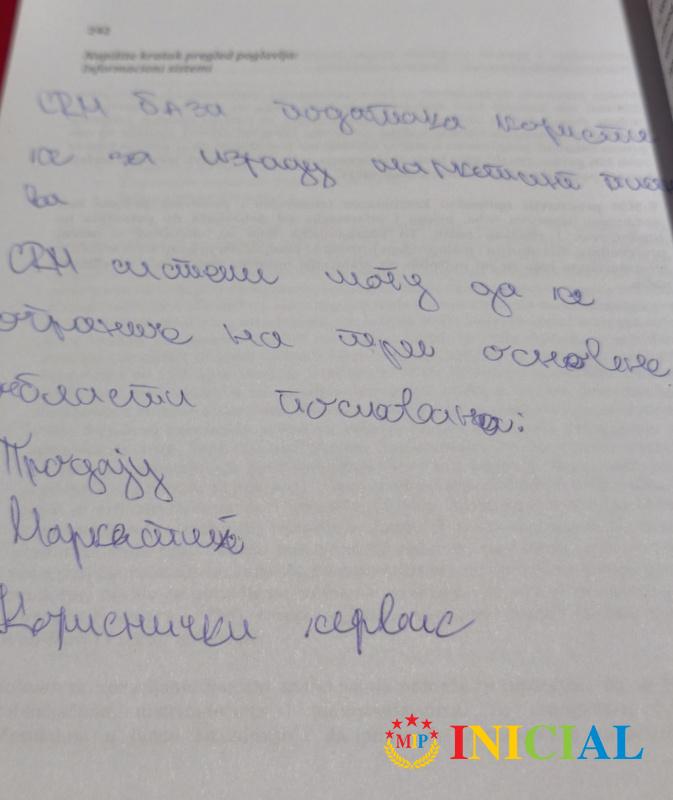 242
Napišite kratak pregled poglavlja:
Informacioni sistemi
CRM база података користи
се за израду маркетинг
ва
CRM системи могу да се
ограниче на три основне
области пословања:
Продају
Маркетинг
Кориснички сервис
MIP INICIAL